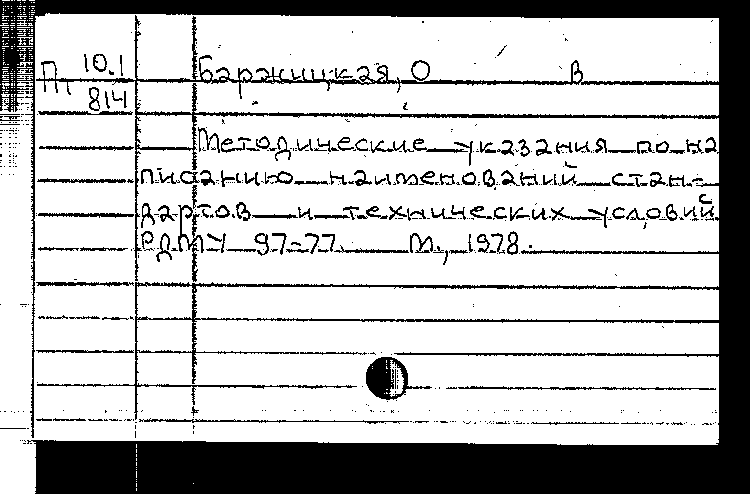 П, 10.1 Баржицкая, О В
814
Методические указания по на
писанию наименований стан-
дартов и технических условий с
РДМУ 97-77. М., 1978.